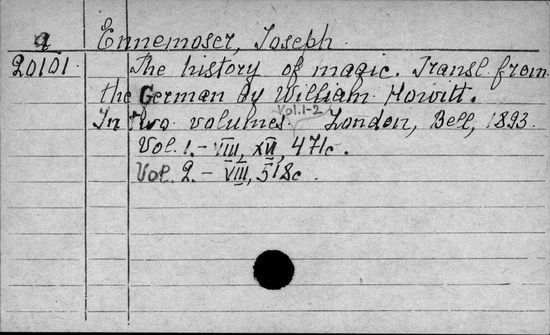 a Ennemoser, Joseph
20101 The history of magic. Transl. from
the German by William Howitt.
Vol. 1-2
In two volumes. London, Bell, 1893.
Vol. 1. - VIII, XVI, 471c.
Vol. 2. - VIII, 518c.